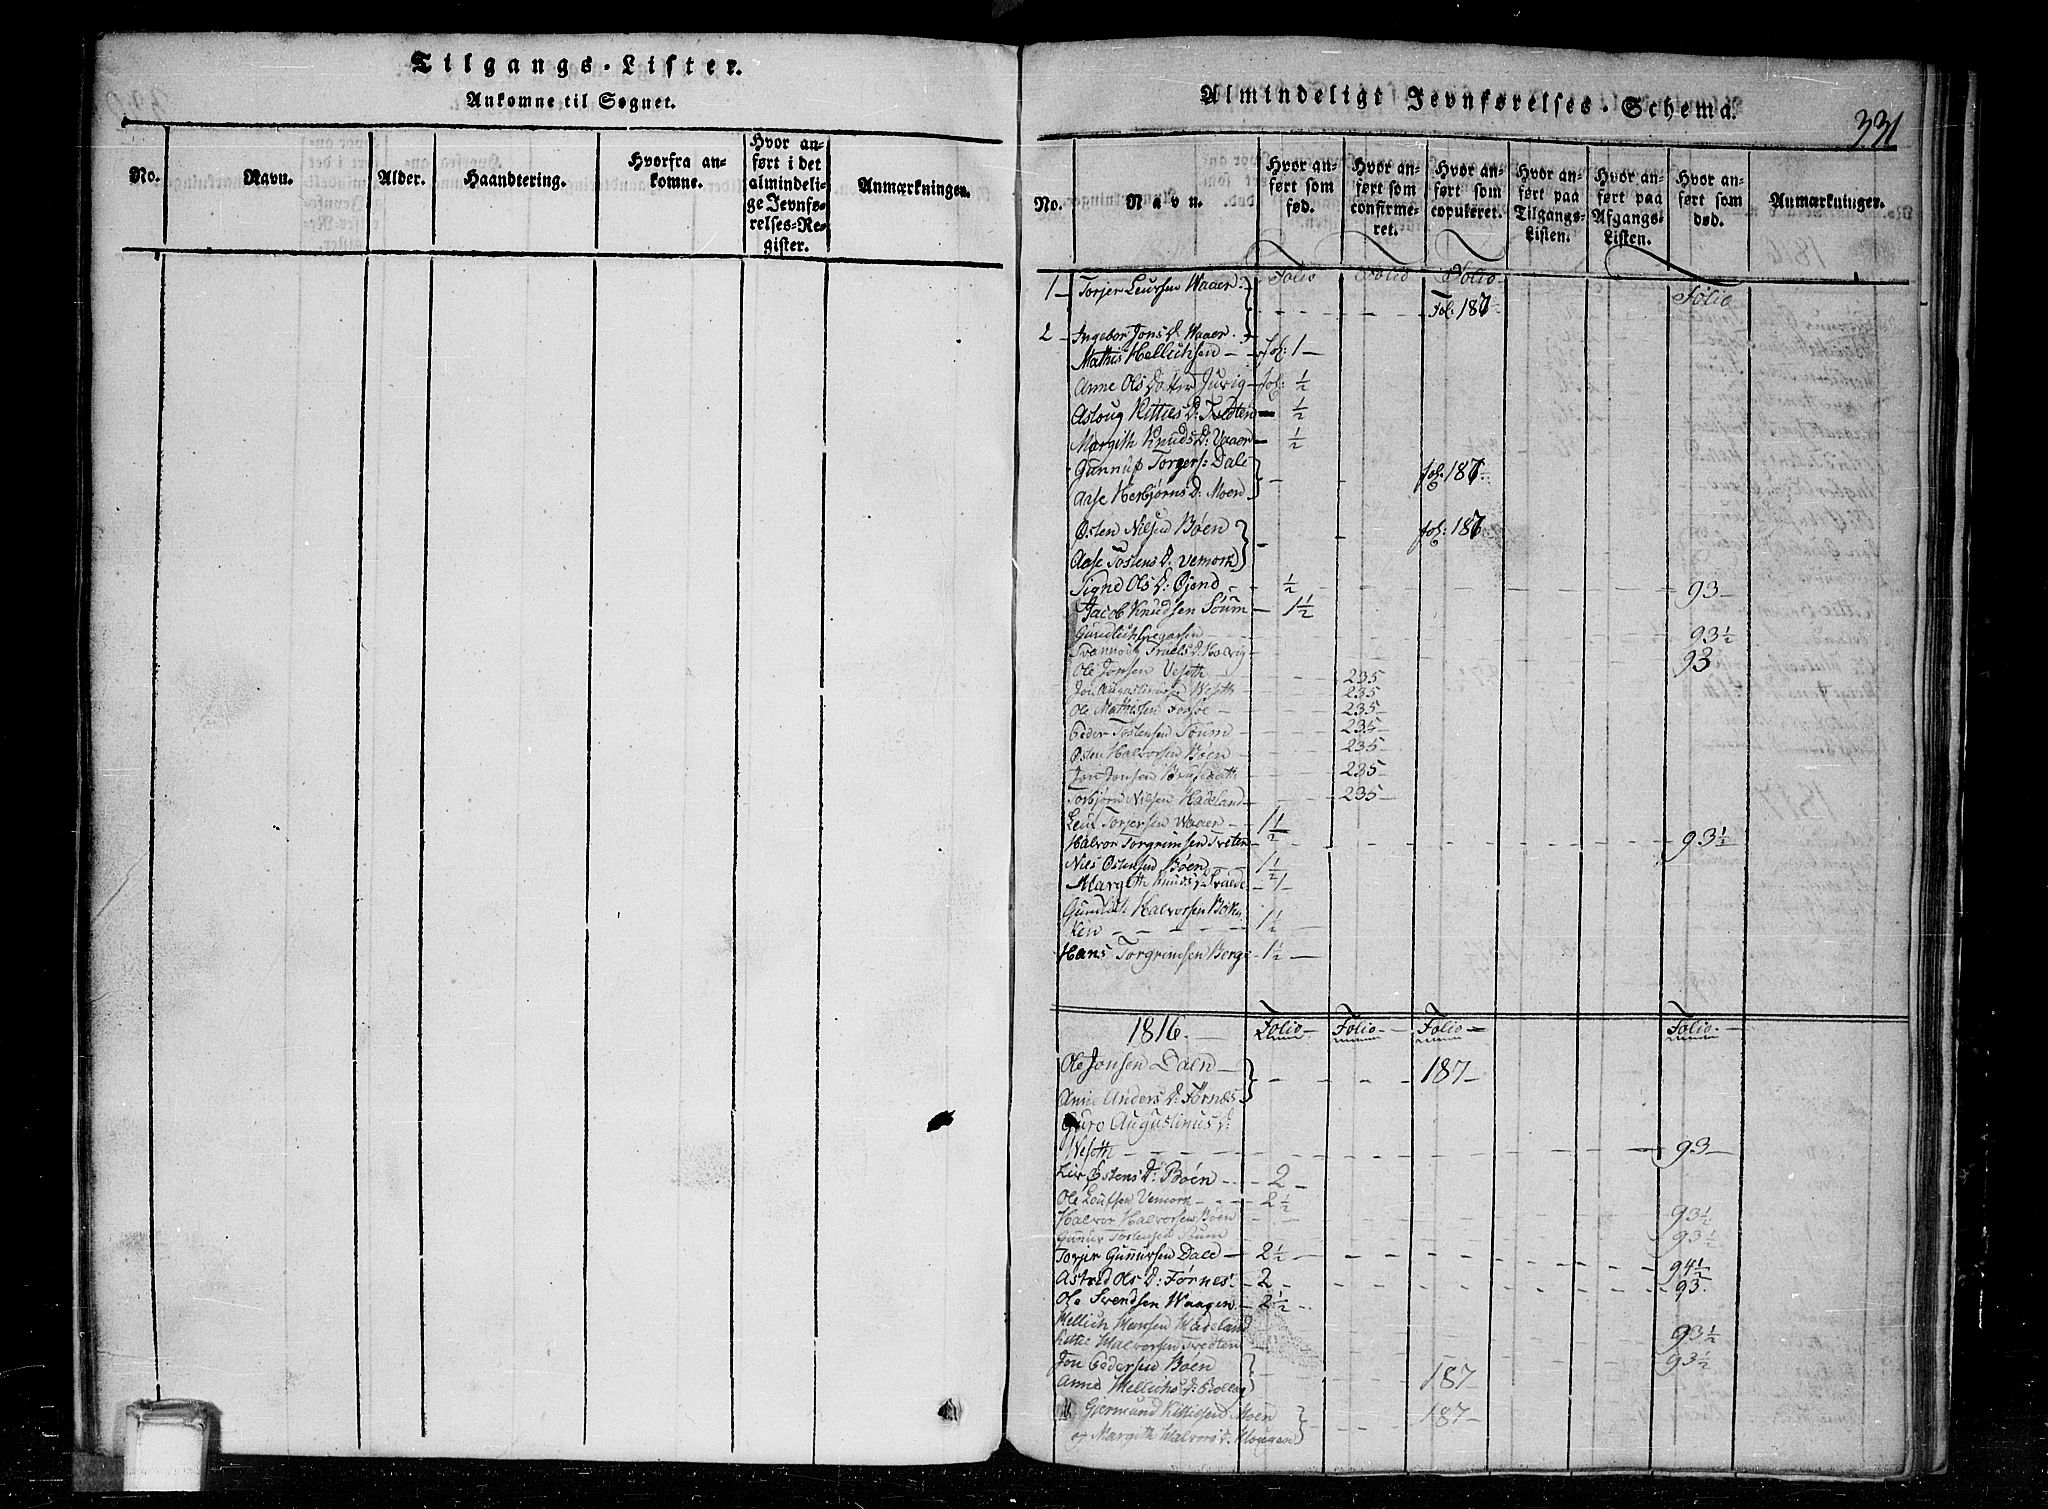 Tilgangs-Lister.
Ankomne til Sognet.
No.
Navn.
Alder.
Haandtering.
Hvorfra an-
komne.
Hvor an-
ført i det
almindeli-
ge Jevnfø-
relses-Re-
gister.
Anmærkninger.
Almindeligt Jevnførelses-Schema.
331
No.
Navn.
Hvor an-
ført som
fød.
Hvor an-
ført som
confirme-
ret.
Hvor an-
ført som
copuleret.
Hvor an-
ført paa
Tilgangs-
Listen.
Hvor an-
ført paa
Afgangs-
Listen.
Hvor an-
ført som
død.
Anmærkninger.
Folio Folio Folio Folio
1 - Torjer Leufsen Waaer. Fol: 187
2 - Ingebor Jons D. Waaer.
Mathis Hellichsen - fol: 1 -
Anne Ols Datter Juvig - fol: ½
Asloug Kitties D: Tvedten - ½
Margith Knuds D: Vaaer - ½
Gunnuf Torgers: Dale fol: 187
Aase Herbjørns D: Moen
Østen Nilsen Bøen fol: 187
Aase Tostens D. Vemork
Signe Ols D: Øjend - ½ 93 -
Jacob Knudsen Sòum - 1½
Gundlich Gregarsen 93½
Svannoug Truels D: Holvig 93
Ole Jonsen Veseth 235
Jon Augustinusen Weseth 235
Ole Mathissen Fosøe - 235 -
Peder Tostensen Sòum 235 -
Østen Halvorsen Bøen 235
Jon Jonsen Brusesath 235 -
Torbjørn Nilsen Hadeland 235 -
Leuf Torjersen Waaer - 1½
Halvor Torgrimsen Tveten 93½
Nils Østensen Bøen - 1½
Margith Knuds D: Tveide 1
Gundlik Halvorsen Bøkn
ken 1½ -
Hans Torgrimsen Berge 1½ -
1816. - Folio - Folio - Folio - Folio -
Ole Jonsen Dalen - 187 -
Anne Anders D: Førnæs
Guro Augustinus D:
Weseth - 93 -
Liv Østens D: Bøen - 2 -
Ole Leufsen Vemork - 2½
Halvor Halvorsen Bøen 93½
Gunur Tostensen Soum 93½
Torjer Gunursen Dale - 2½ 94½
Astrid Ols D: Førnes - 2 93
Ole Svendsen Waagen - 2½
Hellich Hansen Hadeland 93½
Kittel Halvorsen Tvedten 93½
Jon Pedersen Bøen 187
Anne Hellichs D:
Gjermund Kittilsen Moen 187 -
og Margith Halvors D: Hougen